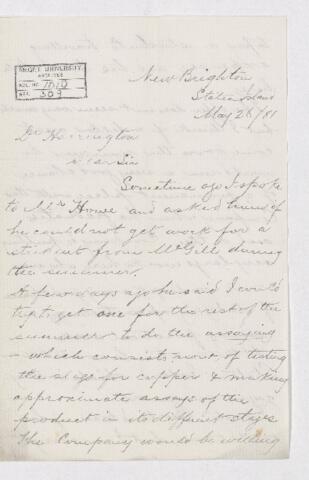 McGILL UNIVERSITY
ARCHIVES
ACC. NO. 1010
REF. 509
New Brighton
Staten Island
May 26/81
Dr Harrington
Dear Sir
Sometime ago I spoke
to Mr Howe and asked him if
he could not get work for a
student from McGill during
the summer.
A few days ago he said I could
try & get one for the rest of the
summer to do the assaying
- which consists most of testing
the slags for copper & making
approximate assays of the
product in its different stages
The Company would be willing